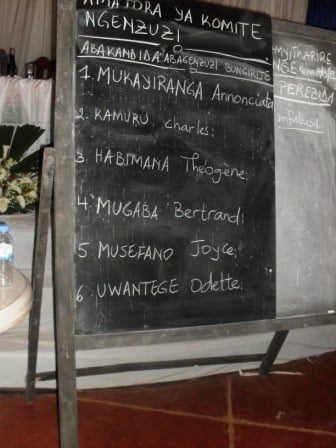 AMATORA YA KOMITE
NGENZUZI
ABAKANDIDA ABAGENZUZI BUNGIRIJE
1. MUKAYIRANGA Annonciata
2. KAMURU Charles;
3. HABIMANA Théogène;
4. MUGABA Bertrand;
5. MUSEFANO Joyce;
6 UWANTEGE Odette;
PEREZIDA